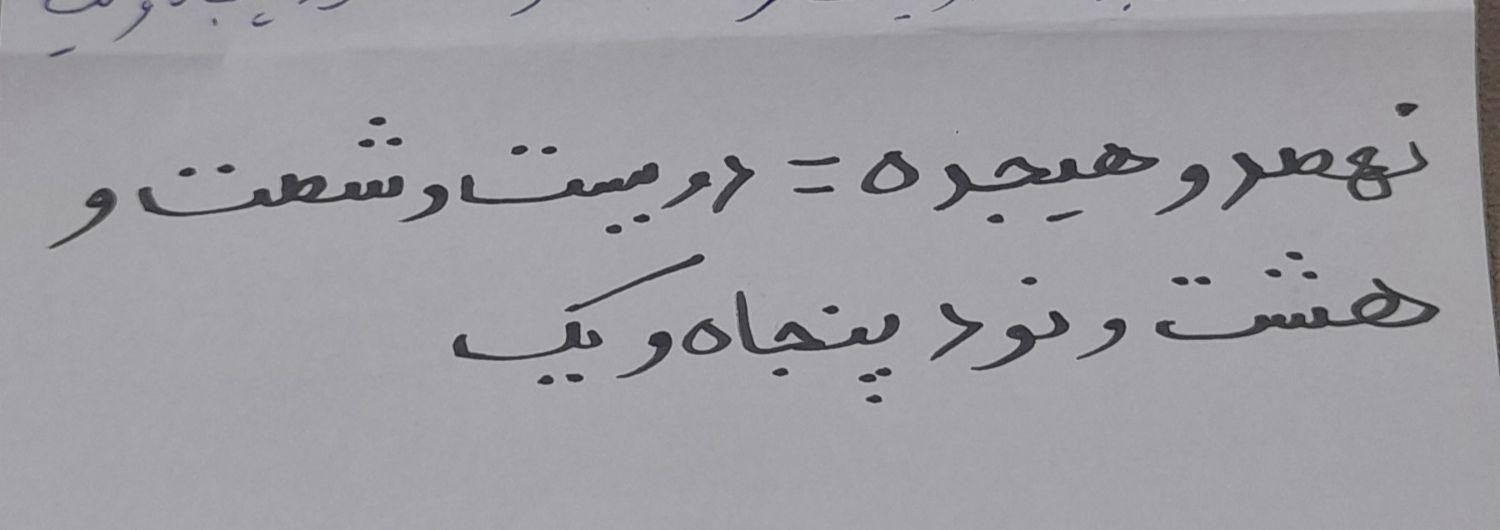 نهصد و هیجده = دویست و شصت و
هشت و نود پنجاه و یک